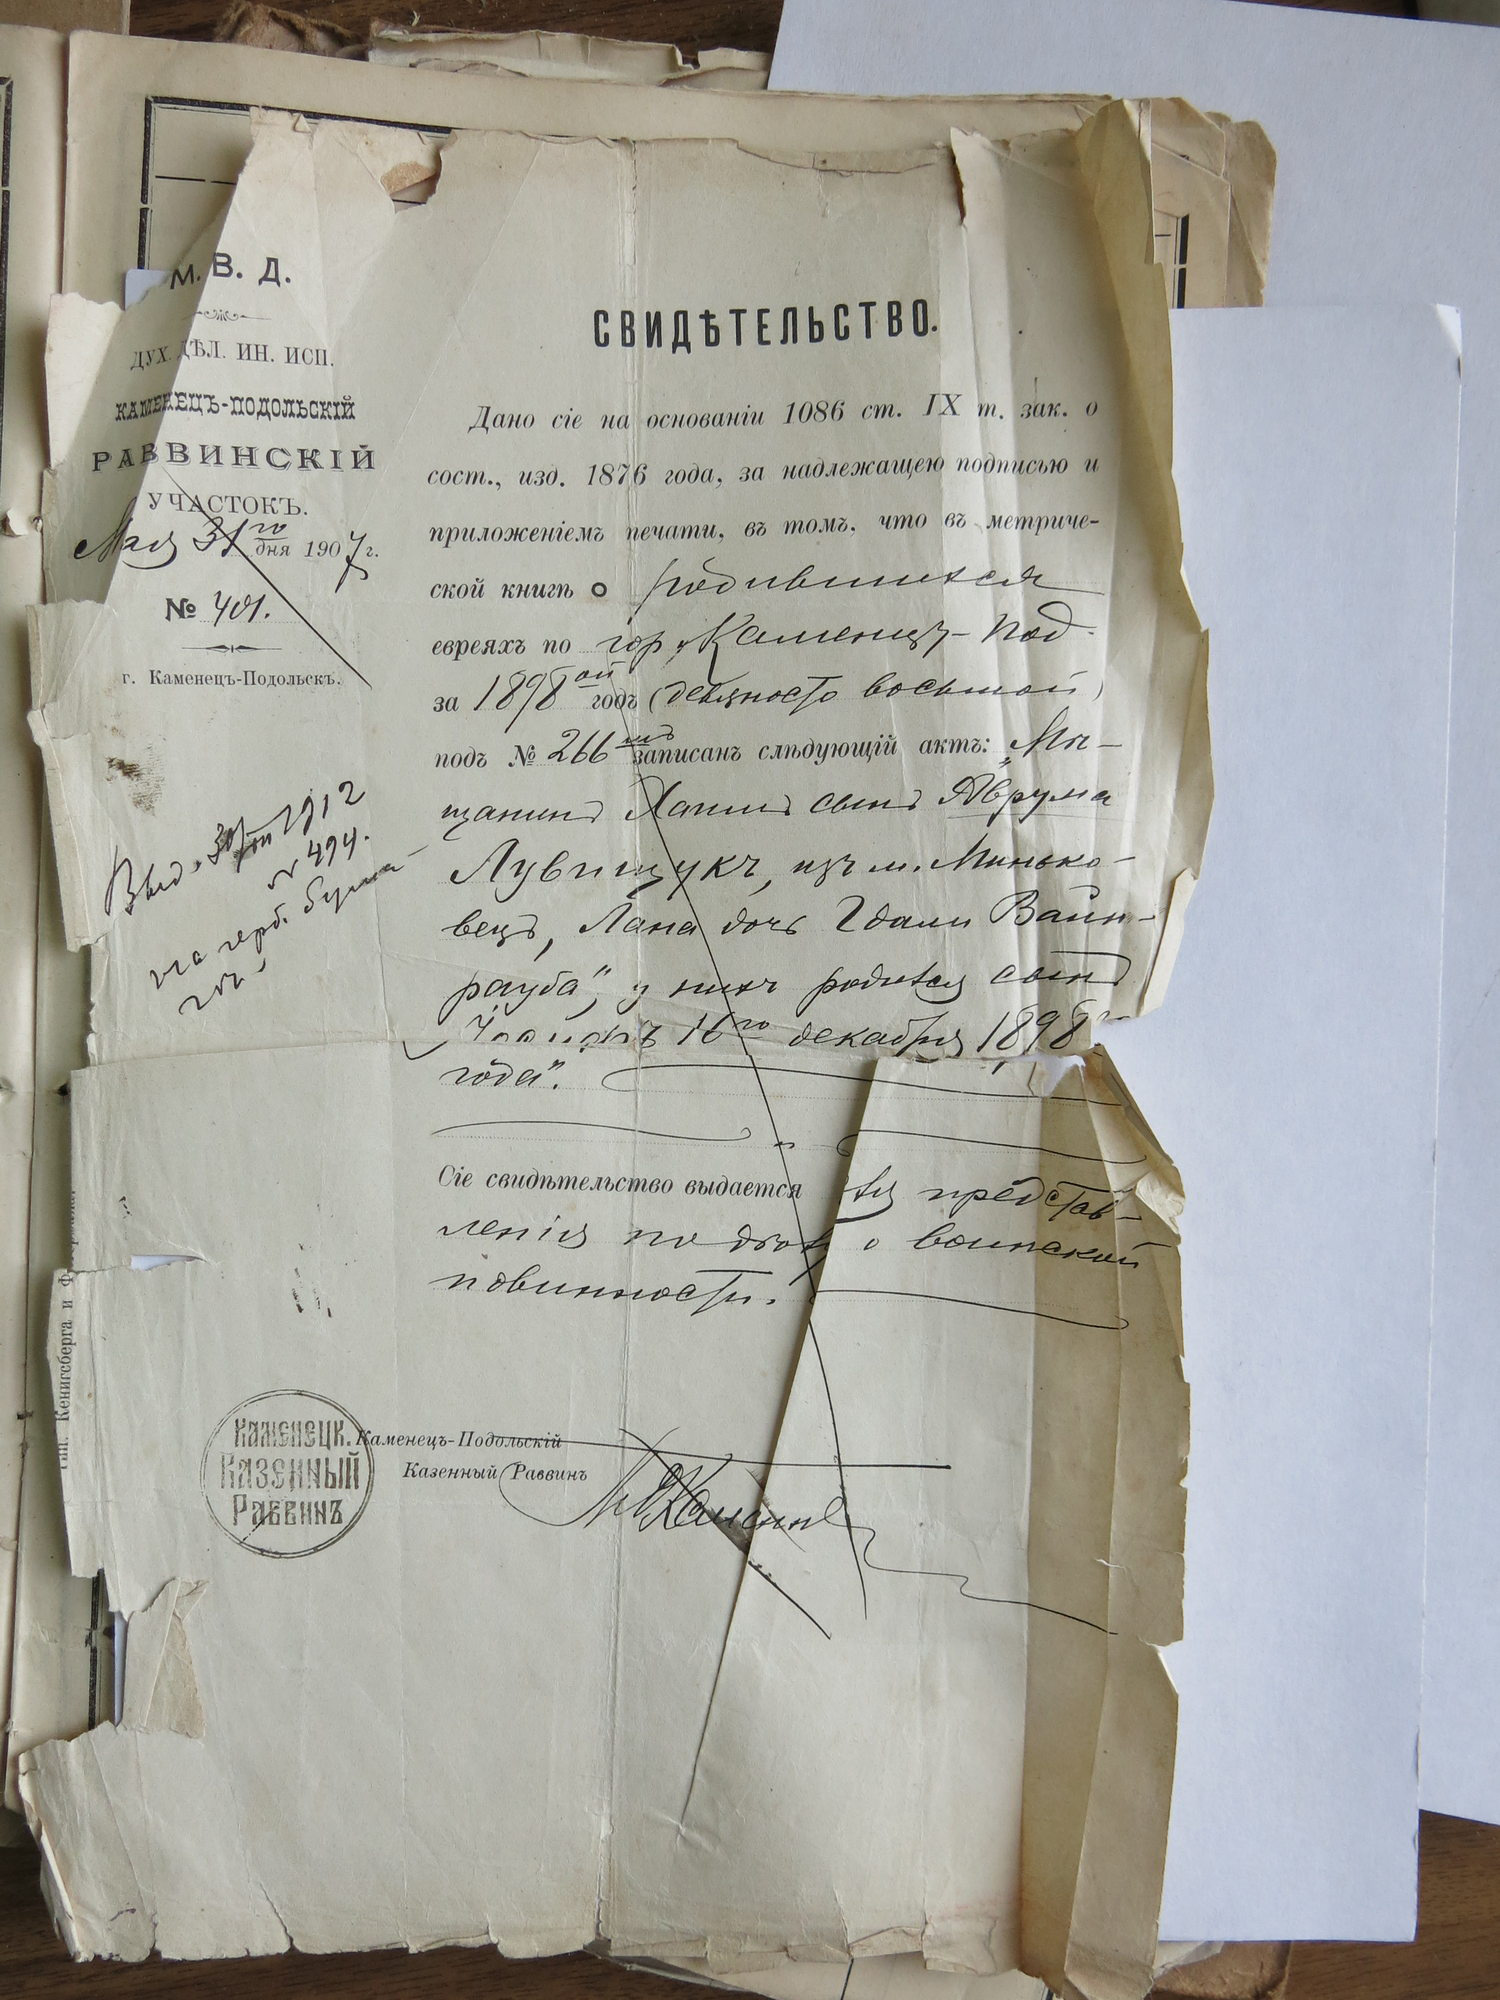 М. В. Д.
ДУХ. ДѢЛ. ИН. ИСП.
КАМЕНЕЦЪ-ПОДОЛЬСКІЙ
РАВВИНСКІЙ
УЧАСТОКЪ.
Мая 31го дня 1907 г.
№ 401.
г. Каменецъ-Подольскъ.
Выд. 1912
№ 494.
на герб. бума
СВИДѢТЕЛЬСТВО.
Дано сіе на основаніи 1086 ст. IX т. зак. о
сост., изд. 1876 года, за надлежащею подписью и
приложеніемъ печати, въ томъ, что въ метриче-
ской книгѣ о родившихся
евреяхъ по гор. Каменецъ-Под.
за 1898ой годъ (девяносто восьмой)
подъ № 266мъ записанъ слѣдующій актъ: „Мѣ-
щанинъ Хаимъ сынъ Аврума
Лувищукъ, изъ м. Минько-
вецъ, Хана дочь Гдали Вайн-
рауба", у нихъ родился сынъ
16го декабря 1898го
года".
Сіе свидѣтельство выдается для представ-
ленія по дѣлу о воинской
повинности.
Каменецъ-Подольскій
Казенный Раввинъ
КАМЕНЕЦК.
КАЗЕННЫЙ
РАВВИНЪ
Тип. Кенигсберга и